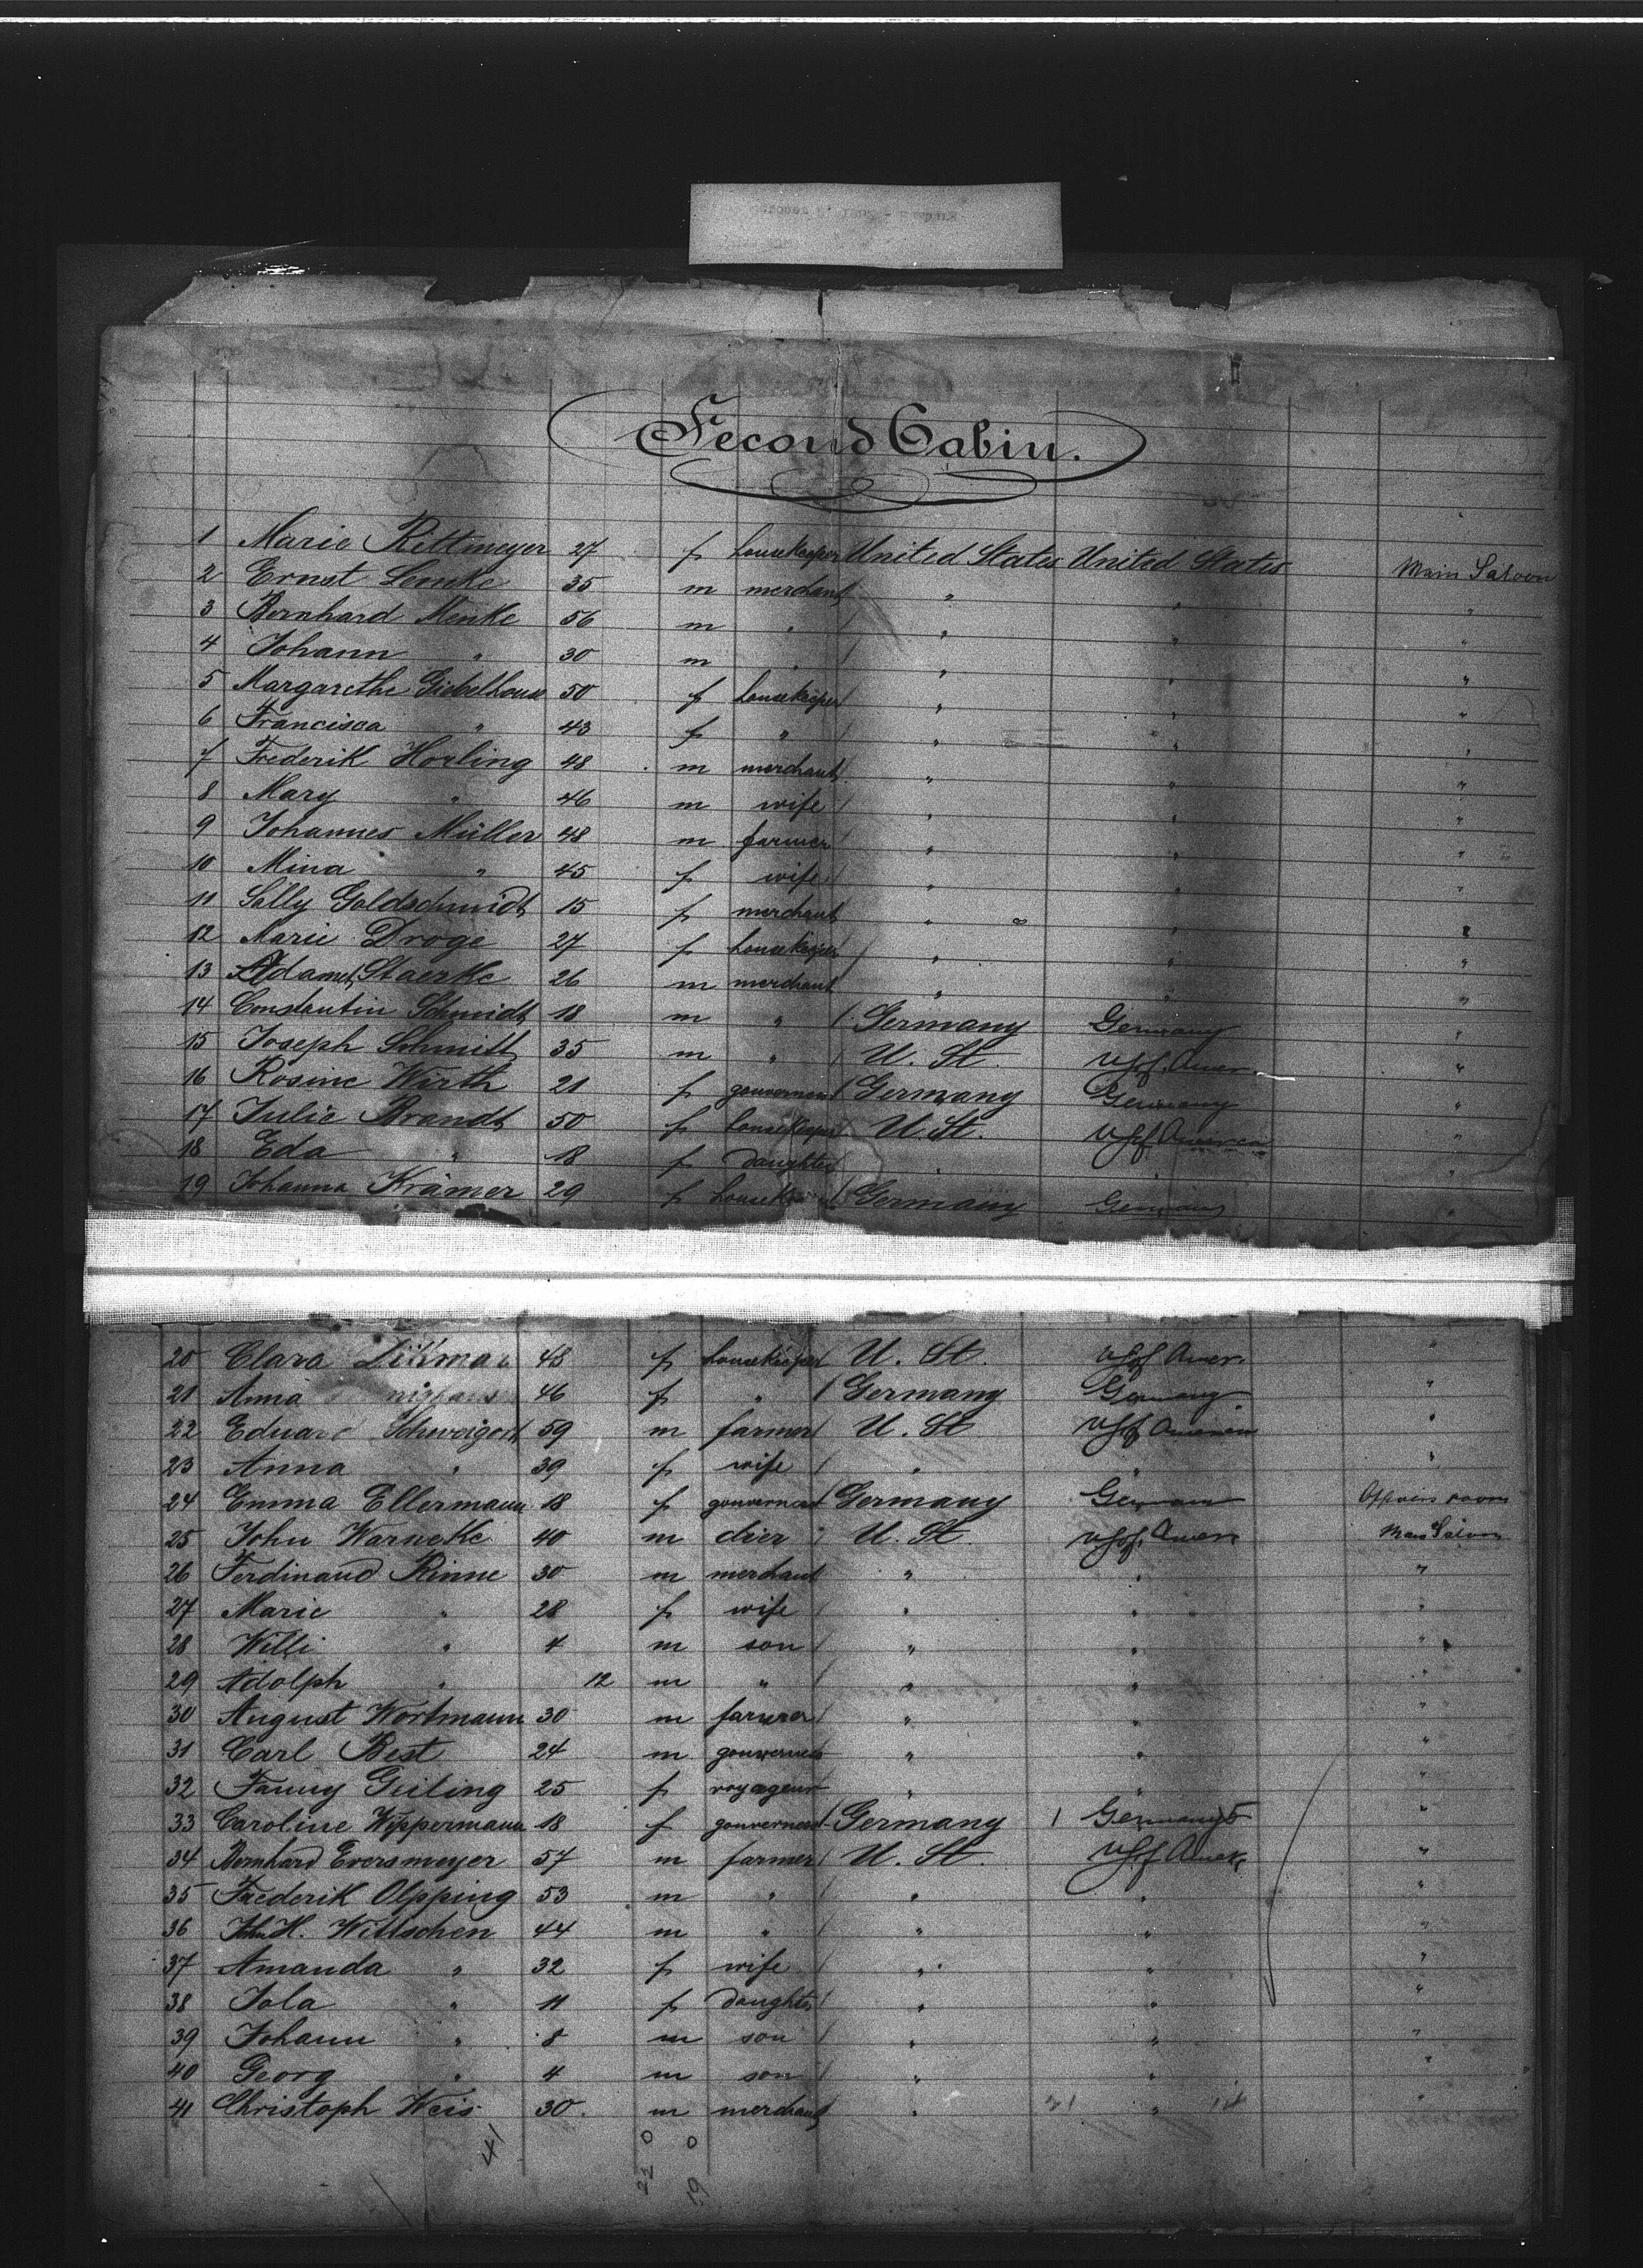 Second Cabin.
1 Marie Rittmeyer 27 f housekeeper United States United States Main Saloon
2 Ernst Lemke 35 m merchant " " "
3 Bernhard Menke 56 m " " " "
4 Johann " 30 m " " " "
5 Margarethe Giebelhouse 50 f housekeeper " " "
6 Francisca " 43 f " " " "
7 Frederik Horling 48 m merchant " " "
8 Mary " 46 m wife " " "
9 Johannes Müller 48 m farmer " " "
10 Mina " 45 f wife " " "
11 Sally Goldschmidt 15 f merchant " " "
12 Marie Droge 27 f housekeeper " " "
13 Staerke 26 m merchant " " "
14 Constantin Schmidt 18 m " Germany Germany "
15 Joseph Schmitt 35 m " U. St. U. S. of Amer. "
16 Rosine Wirth 21 f gouvernant Germany Germany "
17 Julie Brandt 50 f housekeeper U. St. U. S. of America "
18 Eda " 18 f daughter " " "
19 Johanna Krämer 29 f Germany Germany "
20 Clara 48 f housekeeper U. St. U. S. of Amer. "
21 Anna 46 f " Germany Germany "
22 Eduard 59 m farmer U. St. U. S. of America "
23 Anna " 39 f wife " " "
24 Emma Ellermann 18 f gouvernant Germany German room
25 John Warneke 40 m drier U. St. U. S. of Amer. Main Saloon
26 Ferdinand Rinne 30 m merchant " " "
27 Marie " 28 f wife " " "
28 Willi " 4 m son " " "
29 Adolph " 12 m " " " "
30 August Wortmann 30 m farmer " " "
31 Carl Best 24 m gouverner " " "
32 Fanny Geiling 25 f voyageur " " "
33 Caroline Wippermann 18 f gouvernant Germany Germany "
34 Bernhard Eversmeyer 57 m farmer U. St. U. S. of Amer. "
35 Frederik Olpping 53 m " " " "
36 John H. Wittschen 44 m " " " "
37 Amanda " 32 f wife " " "
38 Iola " 11 f daughter " " "
39 Johann " 8 m son " " "
40 Georg " 4 m son " " "
41 Christoph Weis 30 m merchant " " "
41 22 19